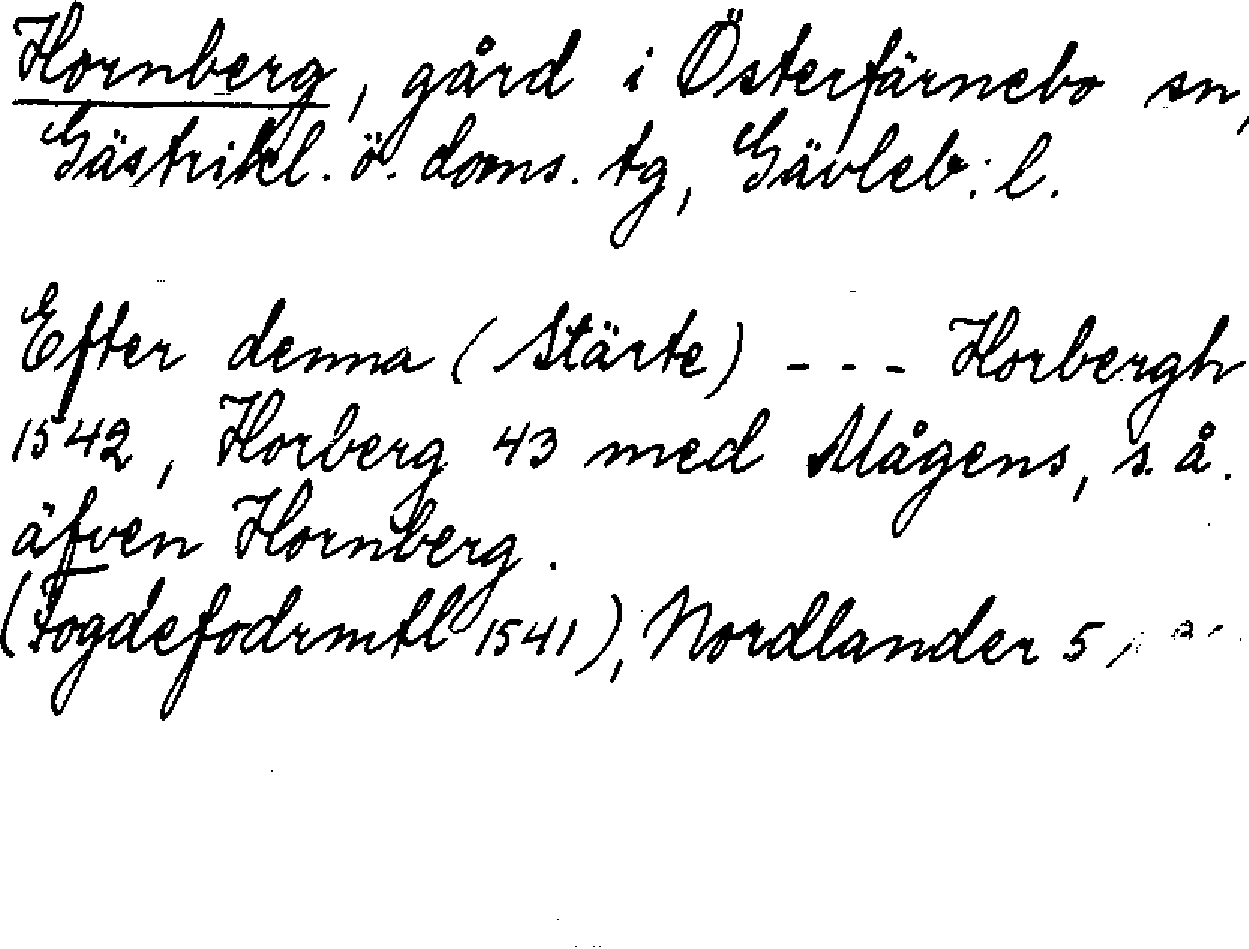 Hornberg, gård i Österfärnebo sn,
Gästrikl. ö. doms. tg, Gävleb. l.
Efter denna (Stärte) - - - Horbergh
1542, Horberg 43 med Mågens, s. å.
äfven Hornberg.
(Fogdefodrmtl 1541), Nordlander 5,